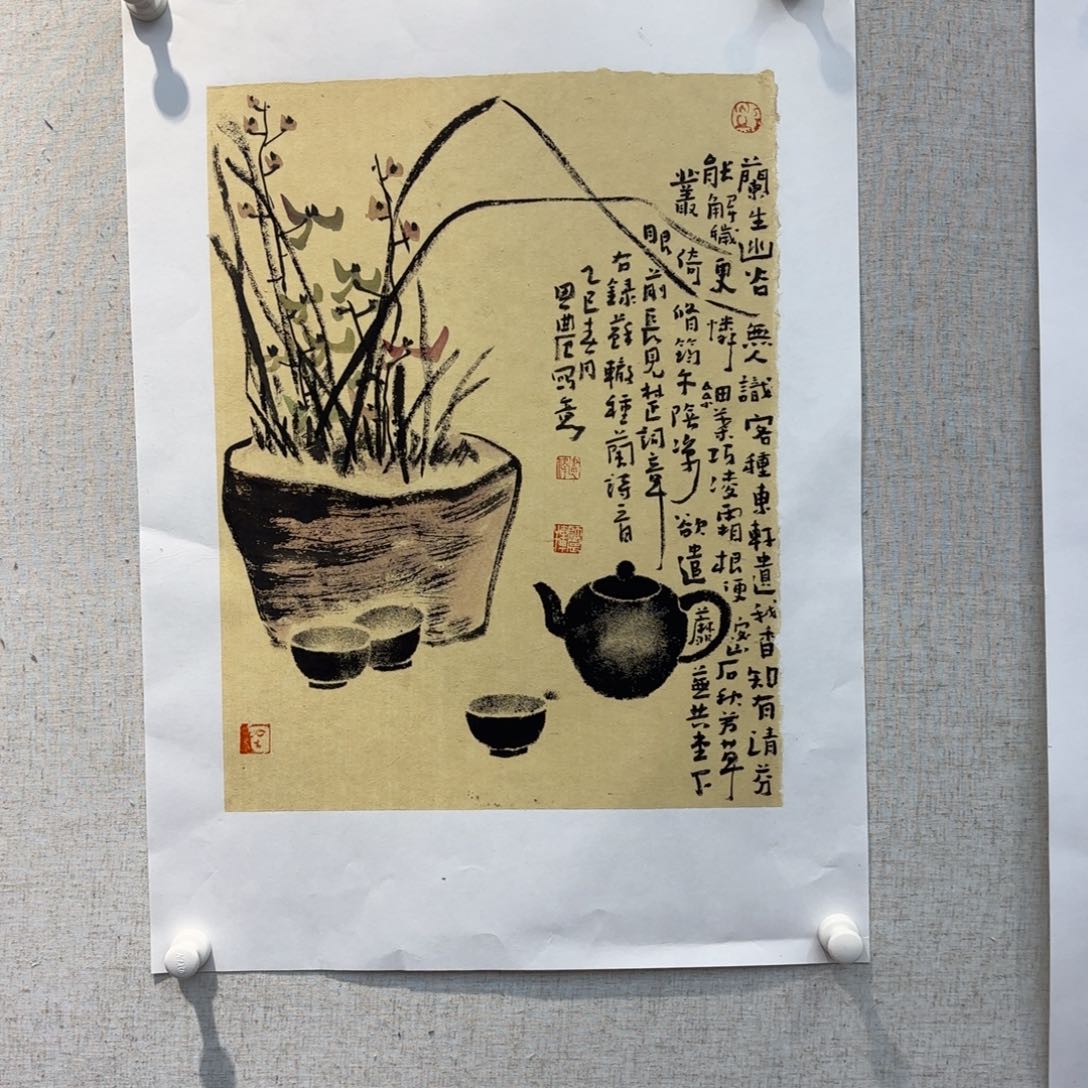 蘭生幽谷無人識客種東軒遺我香知有清芬
能解穢更憐細葉巧凌霜根便密石秋芳草
叢倚脩筠午陰凉欲遣蘼蕪共堂下
眼前長見楚詞章
右錄蘇轍種蘭詩
乙巳春月
農寫意